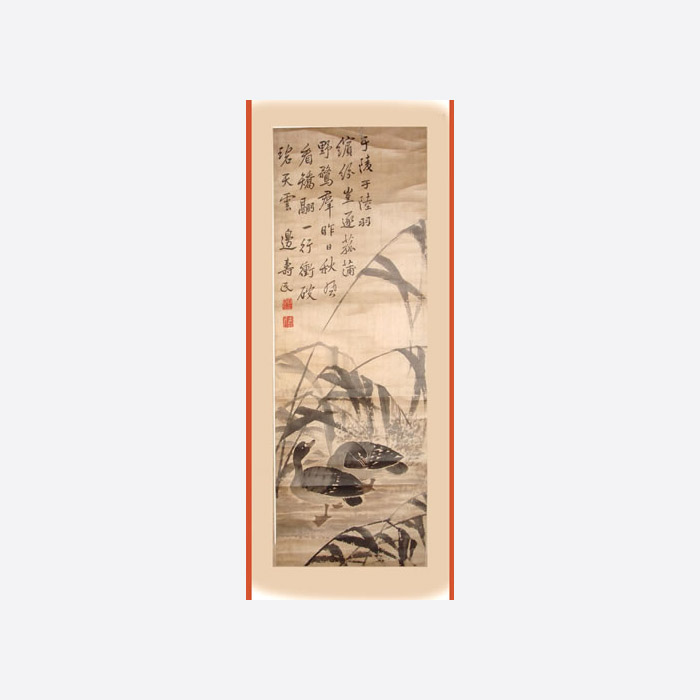 于陵于陸羽
繽紛並逐菰蒲
野鶩群昨日秋風
看矯翮一行衝破
碧天雲 邊壽民